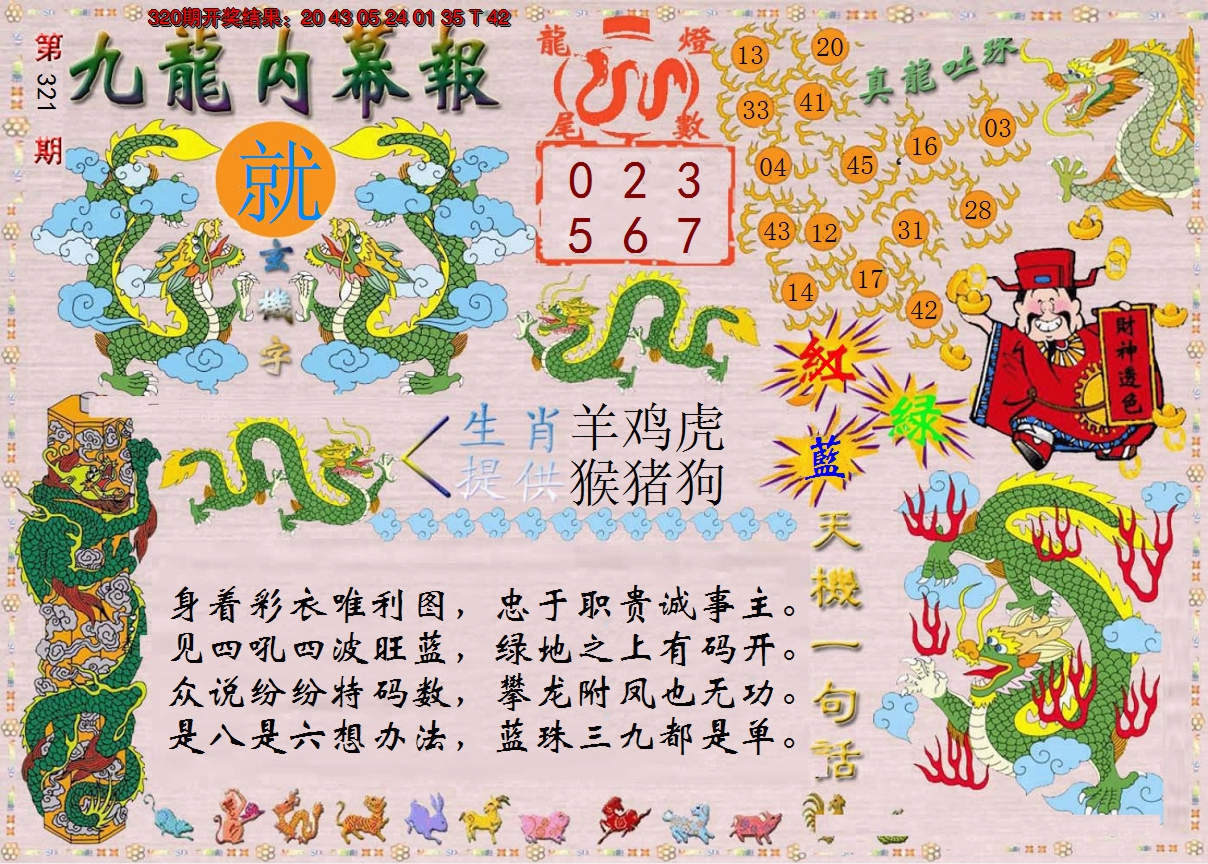 320期开奖结果：20 43 05 24 01 35 T 42
第321期
九龍内幕報
就
玄機字
龍燈尾數
0 2 3
5 6 7
真龍吐珠
13
20
33
41
16
03
04
45
28
43
12
31
14
17
42
財神透色
紅
绿
藍
生肖 羊鸡虎
提供 猴猪狗
天機一句話
身着彩衣唯利图，忠于职责诚事主。
见四吼四波旺蓝，绿地之上有码开。
众说纷纷特码数，攀龙附凤也无功。
是八是六想办法，蓝珠三九都是单。